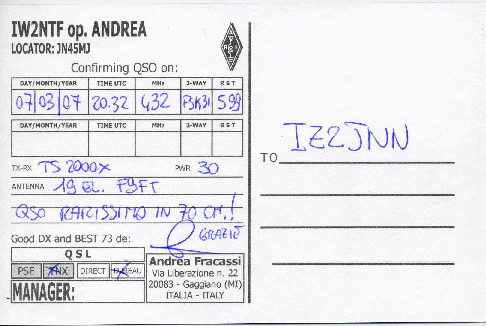 IW2NTF op. ANDREA
LOCATOR: JN45MJ
Confirming QSO on:
DAY/MONTH/YEAR TIME UTC MHz 2-WAY R S T
07/03/07 20.32 432 PSK31 599
DAY/MONTH/YEAR TIME UTC MHz 2-WAY R S T
TX-RX TS 2000X PWR 30
ANTENNA 19 EL. F9FT
QSO RARISSIMO IN 70 CM.!
GRAZIE
Good DX and BEST 73 de:
QSL
PSE TNX DIRECT BUREAU
MANAGER:
Andrea Fracassi
Via Liberazione n. 22
20083 - Gaggiano (MI)
ITALIA - ITALY
TO IZ2JNN